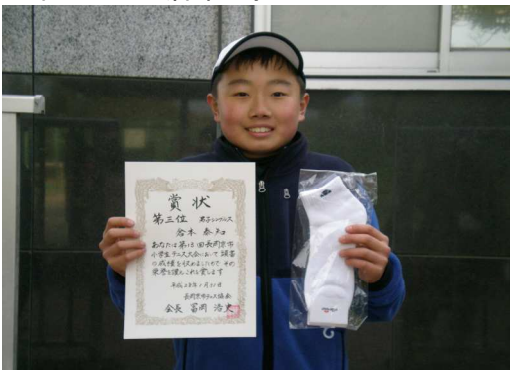 賞状
第三位 男子シングルス
あなたは第18回長岡京市
小学生テニス大会において頭書
の成績を収めましたので その
栄誉を讃え これを賞します
長岡京市テニス協会
会長 冨岡 浩史